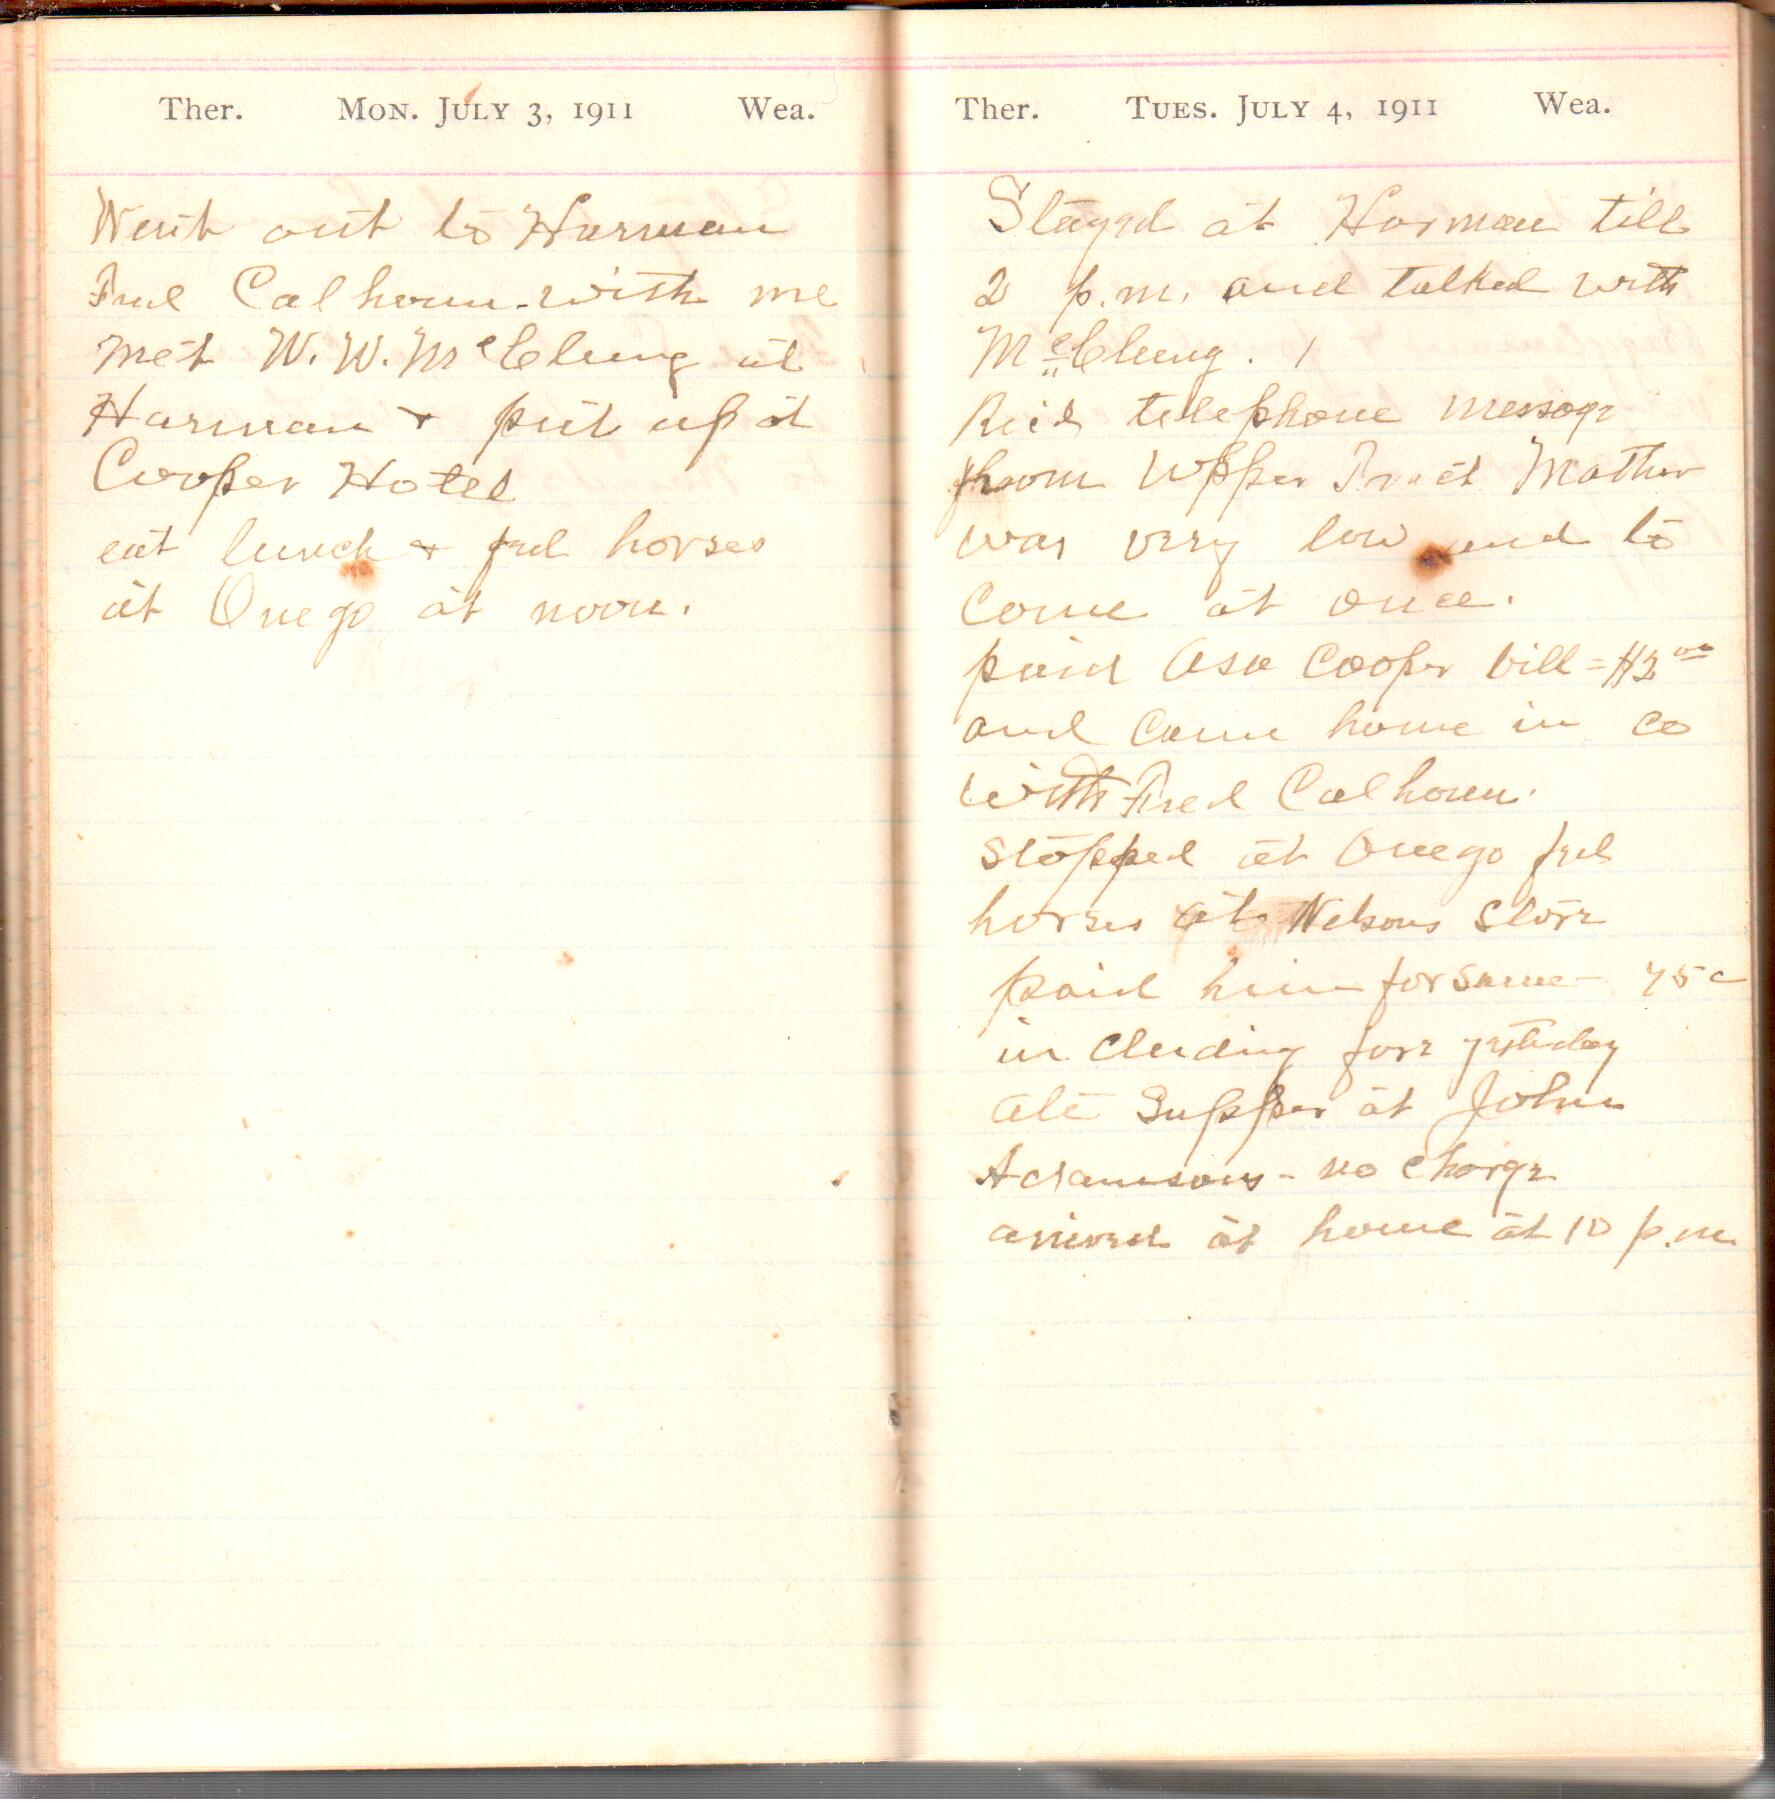 Ther. Mon. July 3, 1911 Wea.
Went out to Harman
Fred Calhoun with me
met W. W. McClung at
Harman & put up at
Cooper Hotel
eat lunch & fed horses
at Onego at noon.
Ther. Tues. July 4, 1911 Wea.
Stayed at Harman till
2 p.m. and talked with
McClung.
Rec'd telephone message
from Upper Tract Mother
was very low and to
come at once.
paid Asa Cooper bill = $2.00
and came home in co
with Fred Calhoun.
Stopped at Onego fed
horses at Nelsons Store
paid him for same - 75c
in cluding for yesterday
ate Supper at John
Adamsons - no charge
arived at home at 10 p.m.